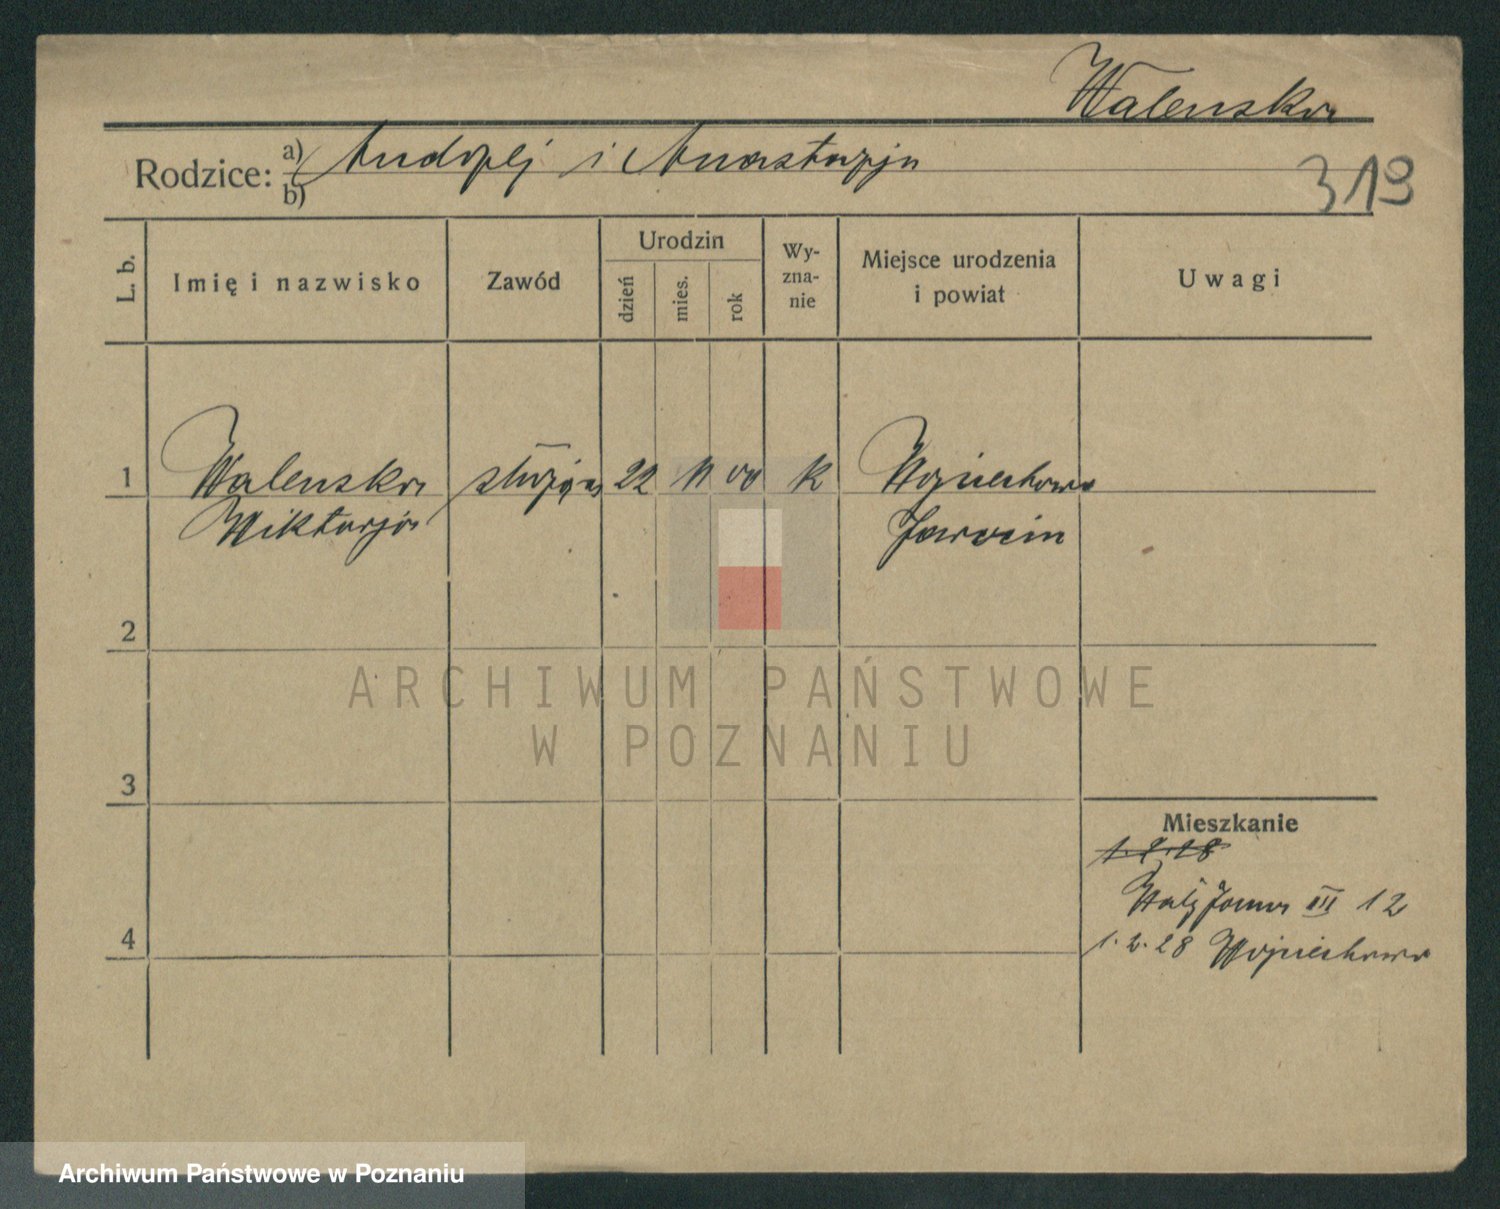 Walenska
Rodzice: a) Andrzej i Anastazja
b)
319
L. b.
Imię i nazwisko
Zawód
Urodzin
dzień
mies.
rok
Wy-
zna-
nie
Miejsce urodzenia
i powiat
Uwagi
1
Walenska służąca 22 11 00 k Wojciechowo
Wiktorja Jarocin
2
ARCHIWUM PAŃSTWOWE
W POZNANIU
3
Mieszkanie
1.2.28
III 12
4
1.2.28 Wojciechowo
Archiwum Państwowe w Poznaniu